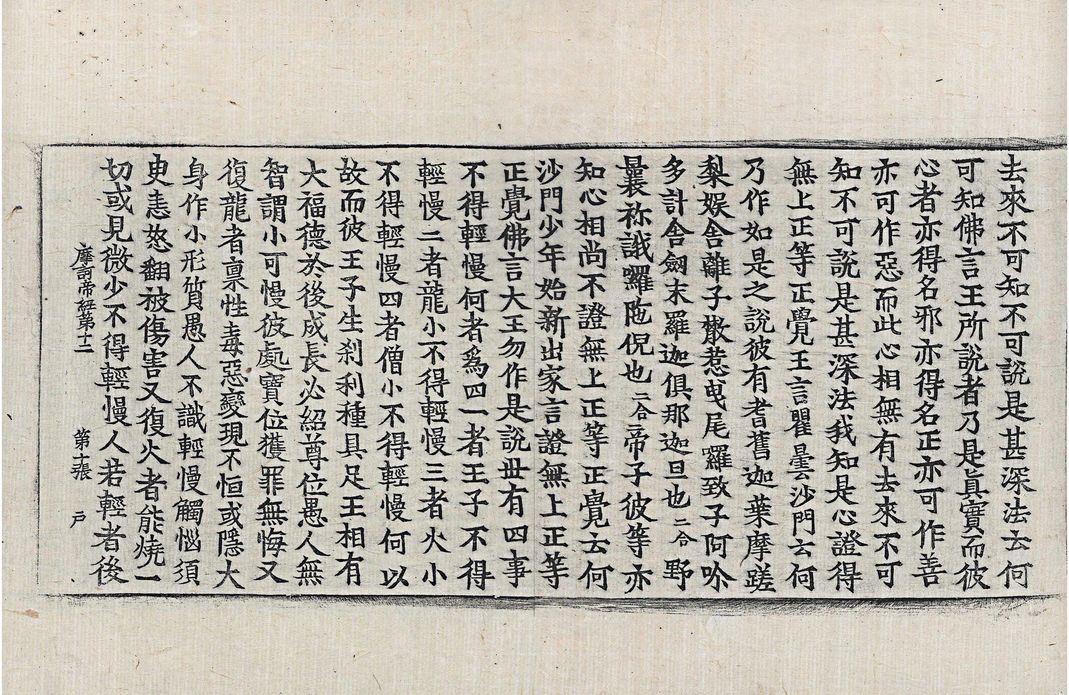 去來不可知不可說是甚深法云何
可知佛言王所說者乃是真實而彼
心者亦得名邪亦得名正亦可作善
亦可作惡而此心相無有去來不可
知不可說是甚深法我知是心證得
無上正等正覺王言瞿曇沙門云何
乃作如是之說彼有耆舊迦葉摩蹉
梨娛舍離子散惹曳尾羅致子阿吟
多計舍劔末羅迦俱那迦旦也二合野
曩祢誐囉陁倪也二合帝子彼等亦
知心相尚不證無上正等正覺云何
沙門少年始新出家言證無上正等
正覺佛言大王勿作是說世有四事
不得輕慢何者爲四一者王子不得
輕慢二者龍小不得輕慢三者火小
不得輕慢四者僧小不得輕慢何以
故而彼王子生刹利種具足王相有
大福德於後成長必紹尊位愚人無
智謂小可慢彼處寶位獲罪無悔又
復龍者禀性毒惡變現不恒或隱大
身作小形質愚人不識輕慢觸惱須
臾恚怒翻被傷害又復火者能燒一
切或見微少不得輕慢人若輕者後
摩訶帝經第十二 第十張 戶